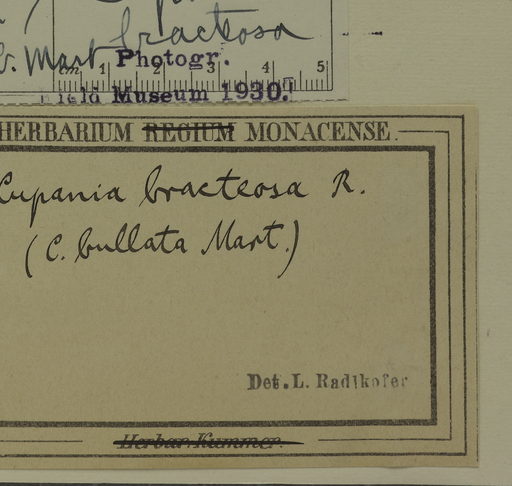 bracteosa
Mart
Photogr.
cm 1 2 3 4 5
Museum 1930.
HERBARIUM REGIUM MONACENSE.
Cupania bracteosa R.
(C. bullata Mart.)
Det. L. Radlkofer
Herbar. Kummer.